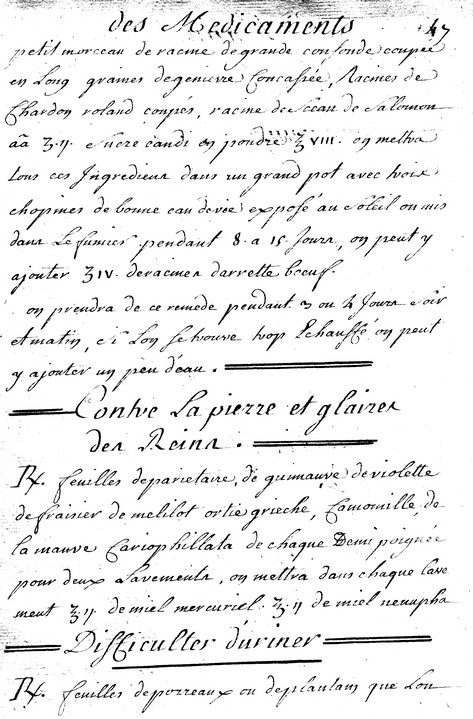 des Medicaments 47
petit morceau de racine de grande consoude coupée
en Long graines degenievre Concassée, Racines de
Chardon roland coupés, racine de Sceau de Salomon
aã ʒ.ıȷ. Sucre candi en poudre ʒ VIII. on mettra
tous ces Ingrediens dans un grand pot avec trois
chopines de bonne eau devie exposé au Soleil ou mis
dans Le fumier pendant 8. a 15. Jours, on peut y
ajouter ʒIV. deracines darrette boeuf.
on prendra de ce remede pendant 3 ou 4 Jours Soir
et matin, Si Lon Setrouve trop Echauffé on peut
y ajouter un peu d'eau.
Contre La pierre et glaires
des Reins.
℞. feuilles deparietaire, de guimauve de violette
de fraisier de melilot ortie grieche, Camomille, de
la mauve Cariophillata de chaque Demi poignée
pour deux Lavements, on mettra dans chaque Lave
ment ʒ.ıȷ. de miel mercuriel. ʒ.ıȷ de miel nenupha
Difficultes d'uriner
℞. feuilles deporreaux ou deplantain que Lon